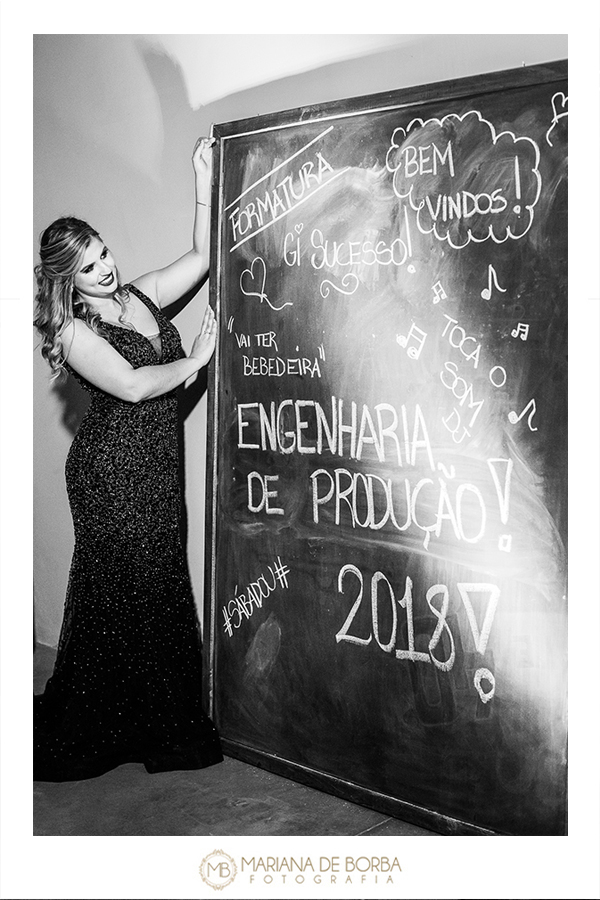 FORMATURA
BEM
VINDOS!
Gi SUCESSO!
"VAI TER
BEBEDEIRA"
TOCA O
SOM
DJ
ENGENHARIA
DE PRODUÇÃO!
#SÁBADOU#
2018!
MB MARIANA DE BORBA
FOTOGRAFIA